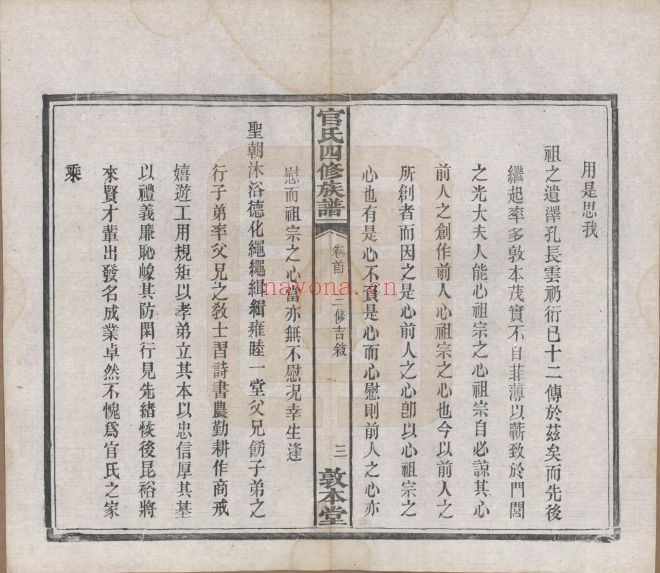 用是思我
祖之遺澤孔長雲礽衍已十二傳於茲矣而先後
繼起率多敦本茂實不自菲薄以蘄致於門閭
之光大夫人能心祖宗之心祖宗自必諒其心
前人之創作前人心祖宗之心也今以前人之
所創者而因之是心前人之心卽以心祖宗之
心也有是心不負是心而心慰則前人之心亦
官氏四修族譜
卷首
三修吉敘
三
敦本堂
慰而祖宗之心當亦無不慰况幸生逢
聖朝沐浴德化繩繩緝緝雍睦一堂父兄飭子弟之
行子弟率父兄之教士習詩書農勤耕作商戒
嬉遊工用規矩以孝弟立其本以忠信厚其基
以禮義廉恥峻其防閑行見先緒恢後昆裕將
來賢才輩出發名成業卓然不愧爲官氏之家
乘
nayona.cn